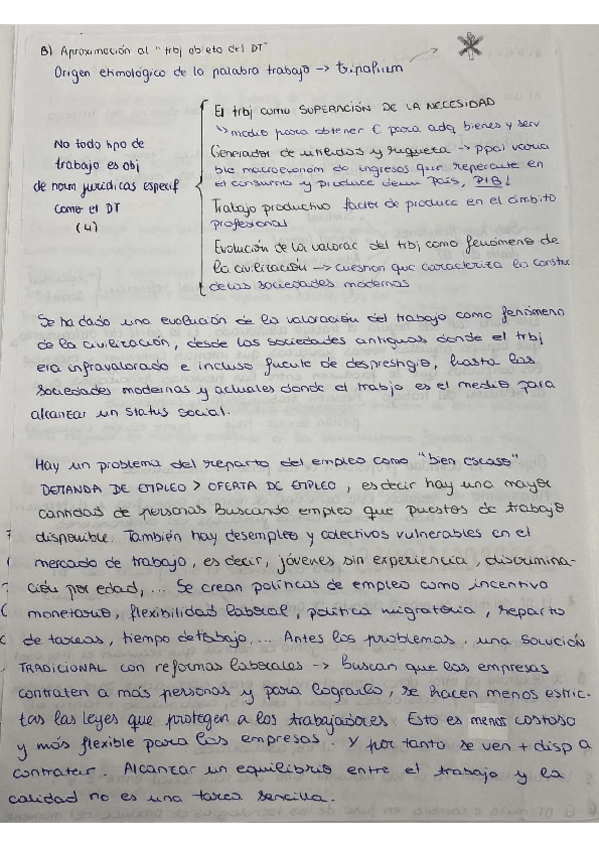 B) Aproximación al "trbj objeto del DT"
Origen etimológico de la palabra trabajo → tripalium
No todo tipo de
trabajo es obj
de norm jurídicas especif
como el DT
(4)
El trbj como SUPERACIÓN DE LA NECESIDAD
↳ medio para obtener € para adq bienes y serv
Generador de utilidades y riqueza → ppal varia
ble macroeconom de ingresos que repercute en
el consumo y produce País, PIB!
Trabajo productivo factor de producc en el ámbito
profesional
Evolución de la valorac del trbj como fenómeno de
la civilización → cuestión que caracteriza la constru
de las sociedades modernas
Se ha dado una evolución de la valoración del trabajo como fenómeno
de la civilización, desde las sociedades antiguas donde el trbj
era infravalorado e incluso fuente de desprestigio, hasta las
sociedades modernas y actuales donde el trabajo es el medio para
alcanzar un status social.
Hay un problema del reparto del empleo como "bien escaso"
DEMANDA DE EMPLEO > OFERTA DE EMPLEO, es decir hay una mayor
cantidad de personas buscando empleo que puestos de trabajo
disponible. También hay desempleo y colectivos vulnerables en el
mercado de trabajo, es decir, jóvenes sin experiencia, discrimina-
ción por edad, ... Se crean políticas de empleo como incentivo
monetario, flexibilidad laboral, política migratoria, reparto
de tareas, tiempo de trabajo, ... Antes los problemas, una SOLUCIÓN
TRADICIONAL con reformas laborales → Buscan que las empresas
contraten a más personas y para lograrlo, se hacen menos estric-
tas las leyes que protegen a los trabajadores. Esto es menos costoso
y más flexible para las empresas. Y por tanto se ven + disp a
contratar. Alcanzar un equilibrio entre el trabajo y la
calidad no es una tarea sencilla.